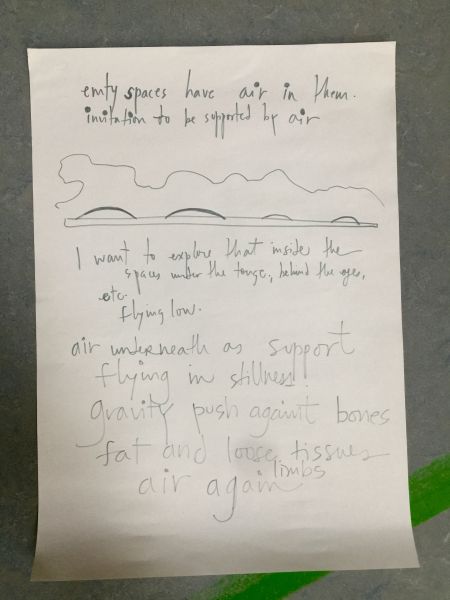 emty spaces have air in them.
invitation to be supported by air
I want to explore that inside the
spaces under the tonge, behind the eyes,
etc.
flying low.
air underneath as support
flying in stillness!
gravity push against bones
fat and loose tissues
limbs
air again